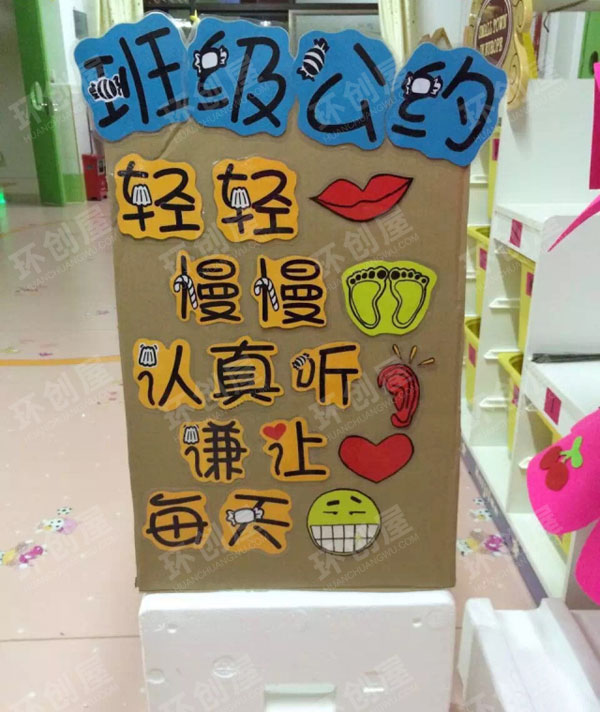 班级公约
轻轻
慢慢
认真听
谦让
每天
SMALL TOWN
IN EUROPE
环创屋
HUANCHUANGWU.COM